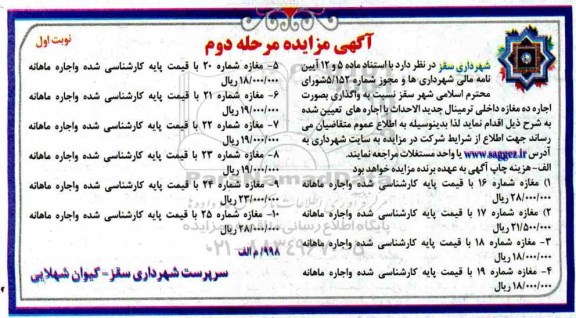 آگهی مزایده مرحله دوم
نوبت اول
شهرداری سقز در نظر دارد با استناد ماده ۵ و ۱۲ آیین
نامه مالی شهرداری ها و مجوز شماره ۵/۱۵۲شورای
محترم اسلامی شهر سقز نسبت به واگذاری بصورت
اجاره ده مغازه داخلی ترمینال جدید الاحداث با اجاره های تعیین شده
به شرح ذیل اقدام نماید لذا بدینوسیله به اطلاع عموم متقاضیان می
رساند جهت اطلاع از شرایط شرکت در مزایده به سایت شهرداری به
آدرس www.saggez.ir یا واحد مستغلات مراجعه نمایند.
الف- هزینه چاپ آگهی به عهده برنده مزایده خواهد بود
۱) مغازه شماره ۱۶ با قیمت پایه کارشناسی شده واجاره ماهانه
۲۸/۰۰۰/۰۰۰ ریال
۲) مغازه شماره ۱۷ با قیمت پایه کارشناسی شده واجاره ماهانه
۲۱/۵۰۰/۰۰۰ ریال
۳- مغازه شماره ۱۸ با قیمت پایه کارشناسی شده واجاره ماهانه
۱۸/۰۰۰/۰۰۰ ریال
۴- مغازه شماره ۱۹ با قیمت پایه کارشناسی شده واجاره ماهانه
۱۸/۰۰۰/۰۰۰ ریال
۵- مغازه شماره ۲۰ با قیمت پایه کارشناسی شده واجاره ماهانه
۱۸/۰۰۰/۰۰۰ ریال
۶- مغازه شماره ۲۱ با قیمت پایه کارشناسی شده واجاره ماهانه
۱۹/۰۰۰/۰۰۰ ریال
۷- مغازه شماره ۲۲ با قیمت پایه کارشناسی شده واجاره ماهانه
۱۹/۰۰۰/۰۰۰ ریال
۸- مغازه شماره ۲۳ با قیمت پایه کارشناسی شده واجاره ماهانه
۱۹/۰۰۰/۰۰۰ ریال
۹- مغازه شماره ۲۴ با قیمت پایه کارشناسی شده واجاره ماهانه
۲۳/۰۰۰/۰۰۰ ریال
۱۰- مغازه شماره ۲۵ با قیمت پایه کارشناسی شده واجاره ماهانه
۲۸/۰۰۰/۰۰۰ ریال
۹۹۸/م الف
سرپرست شهرداری سقز- کیوان شهلایی